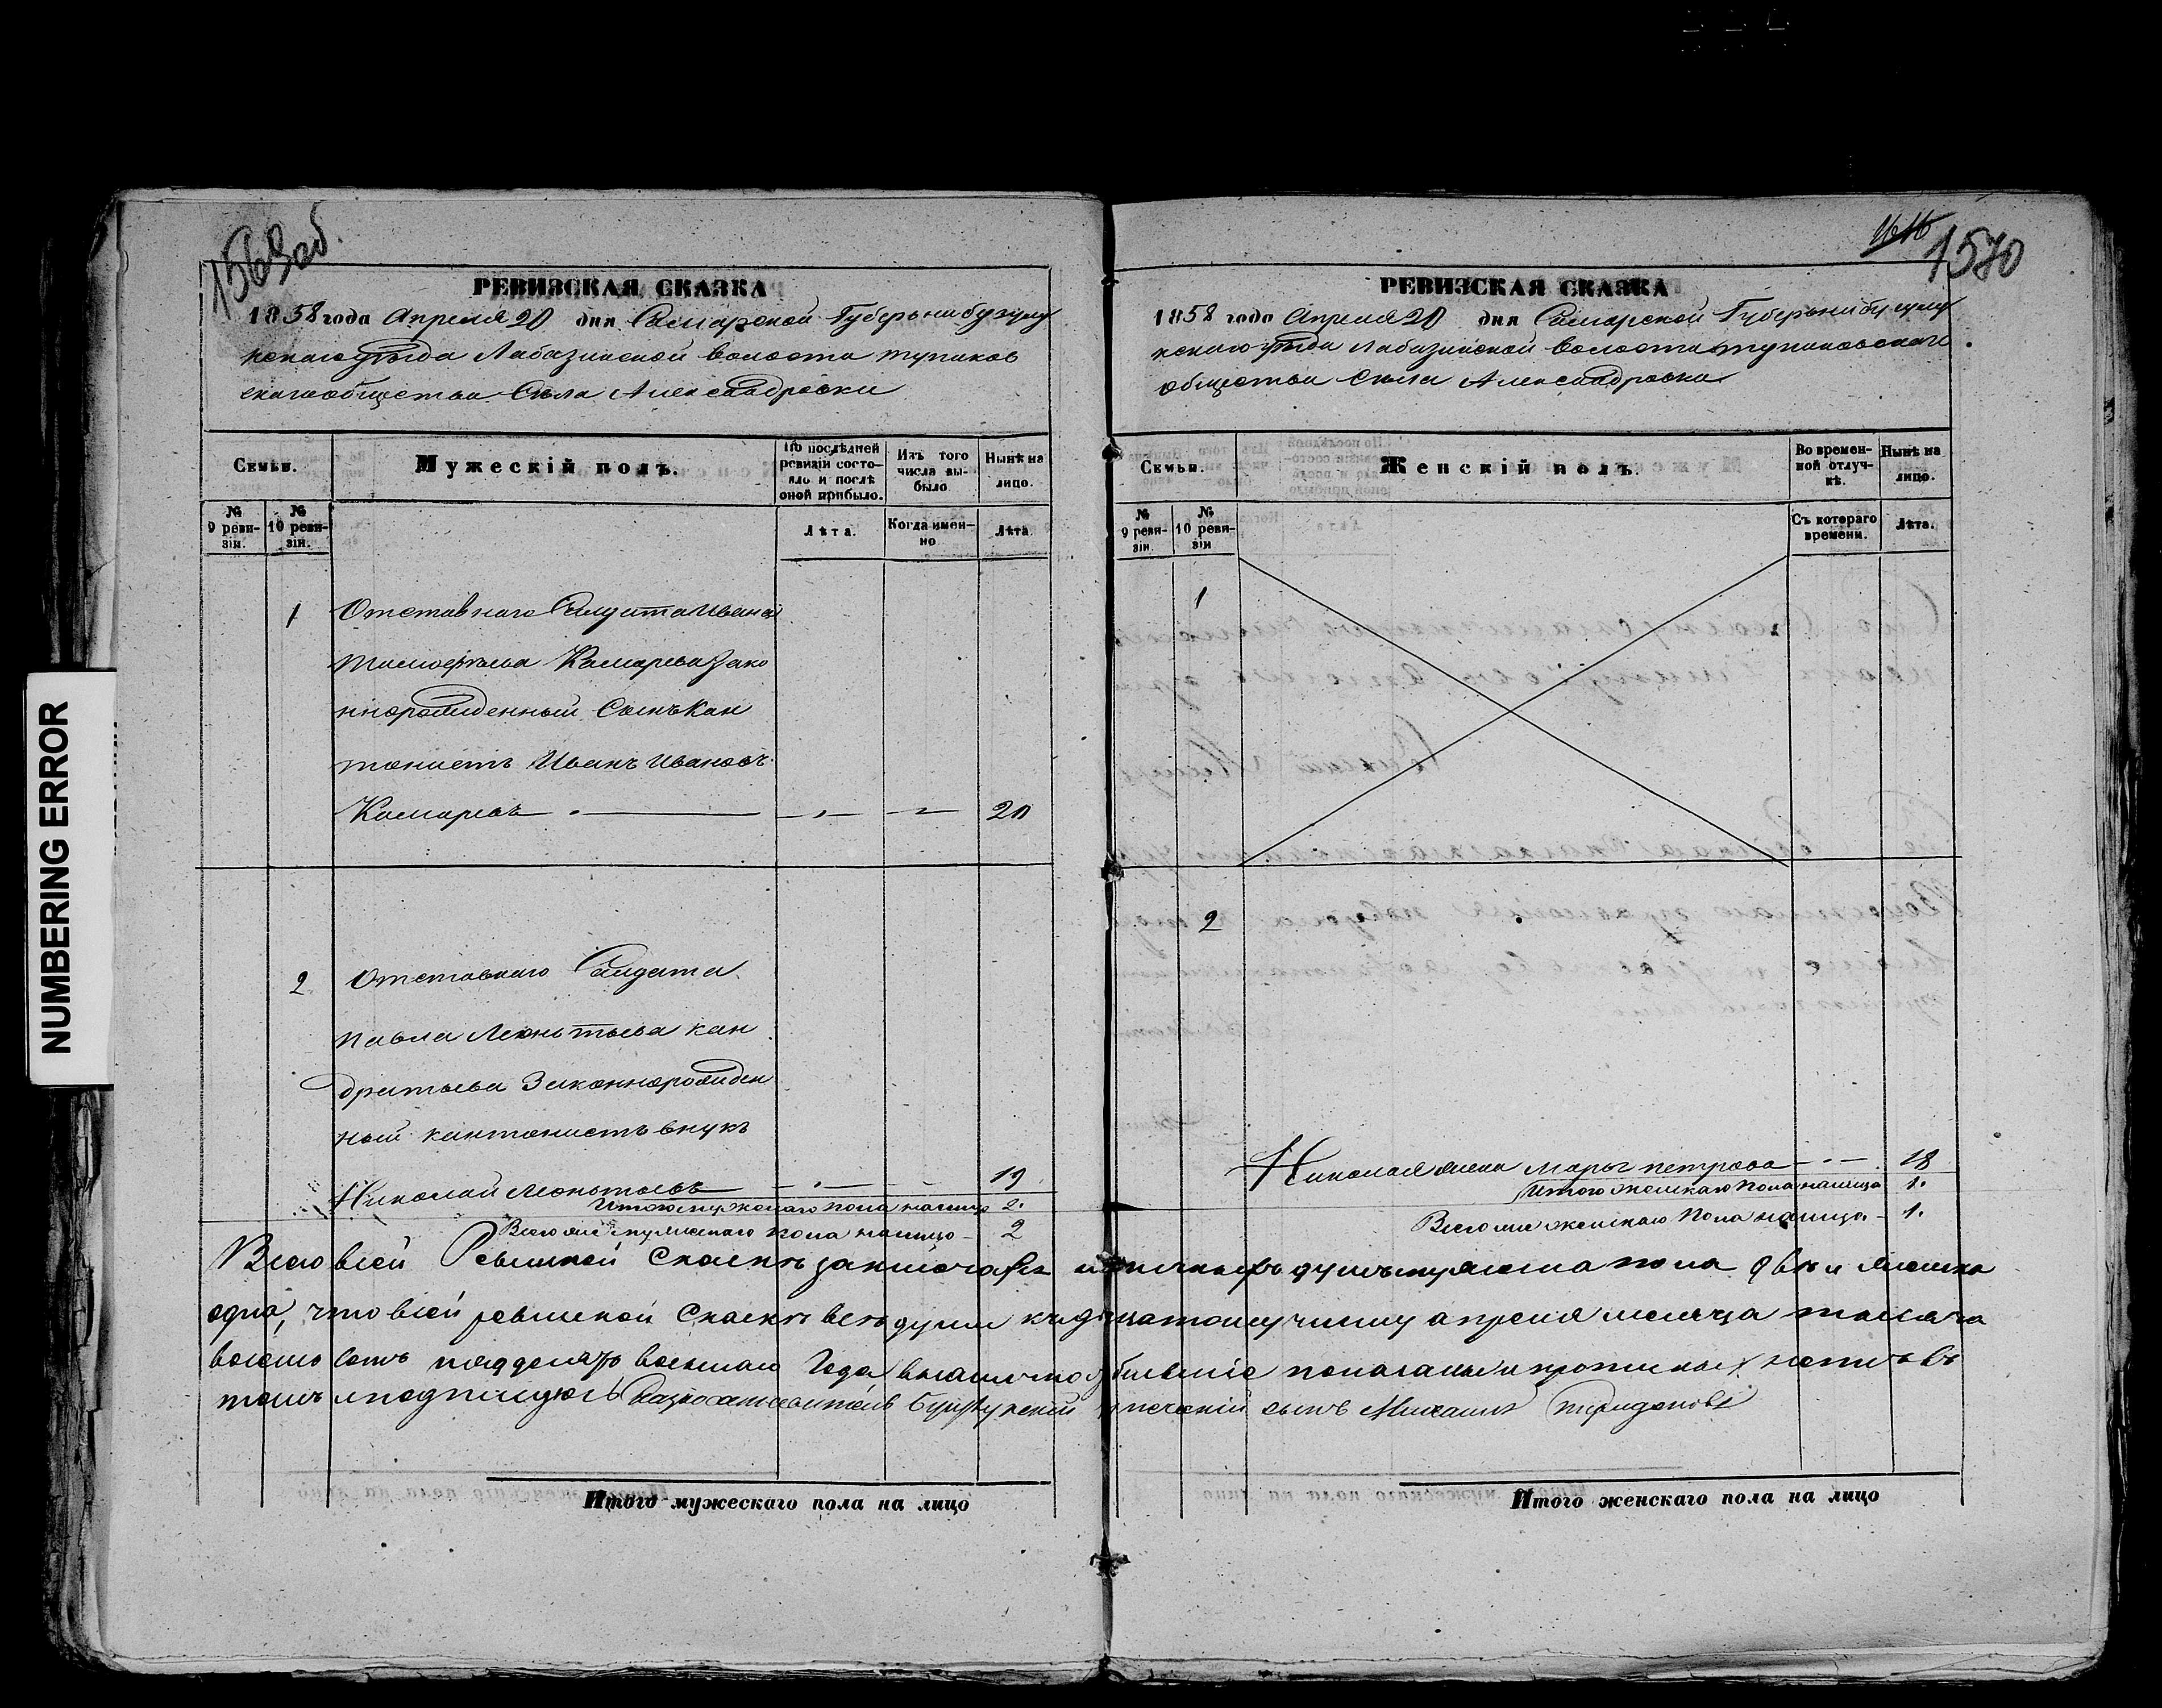 NUMBERING ERROR
1569об.
РЕВИЗСКАЯ СКАЗКА
1858 года Апреля 20 дня Самарской Губерьни бузулу
кскаго уѣзда Лабазинской волости тупиков
скагообщества Сѣла Александровки
Семьи.
Мужескій полъ.
По послѣдней ревизіи состояло и послѣ оной прибыло.
Изъ того числа выбыло
Нынѣ на лицо.
№ 9 ревизіи.
№ 10 ревизіи.
Лѣта.
Когда именно
Лѣта.
1 Отставнаго Салдата Ивана
Тимофеева Камарева Зако
ннорожденный Сынъ Кан
тонистъ Иванъ Ивановъ
Камаревъ 20
2 Отставнаго Салдата
Павла Леоньтьева кан
дратьева Законнорожден
ный кантонистъ внукъ
Николай Леоньтьевъ 19
Итого мужескаго пола налицо 2.
Всего же мужескаго пола налицо 2
1570
РЕВИЗСКАЯ СКАЗКА
1858 года Апреля 20 дня Самарской Губерьни бузулу
кскаго уѣзда Лабазинской волости тупиковскаго
общества Сѣла Александровки
Семьи.
Женскій полъ.
Во временной отлучкѣ.
Нынѣ на лицо.
№ 9 ревизіи.
№ 10 ревизіи
Съ котораго времени.
Лѣта.
1
2
Николая жена Марья петрова 18
Итого женскаго Пола налицо 1.
Всего же женскаго Пола налицо 1.
Всего всей Ревизской Сказкѣ заключается душъ мужеска пола двѣ и женска
одна, что всей ревизской Сказкѣ всѣ души апреля месяца тысяча
восемь сотъ пяддесятъ восьмаго Года
томъ и подписуюсь сынъ Михаилъ
Итого мужескаго пола на лицо
Итого женскаго пола на лицо